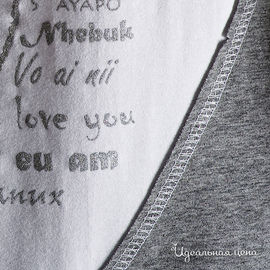 S AYAPO
Nhebuk
Vo ai nii
love you
eu am
аних
Идеальная цена